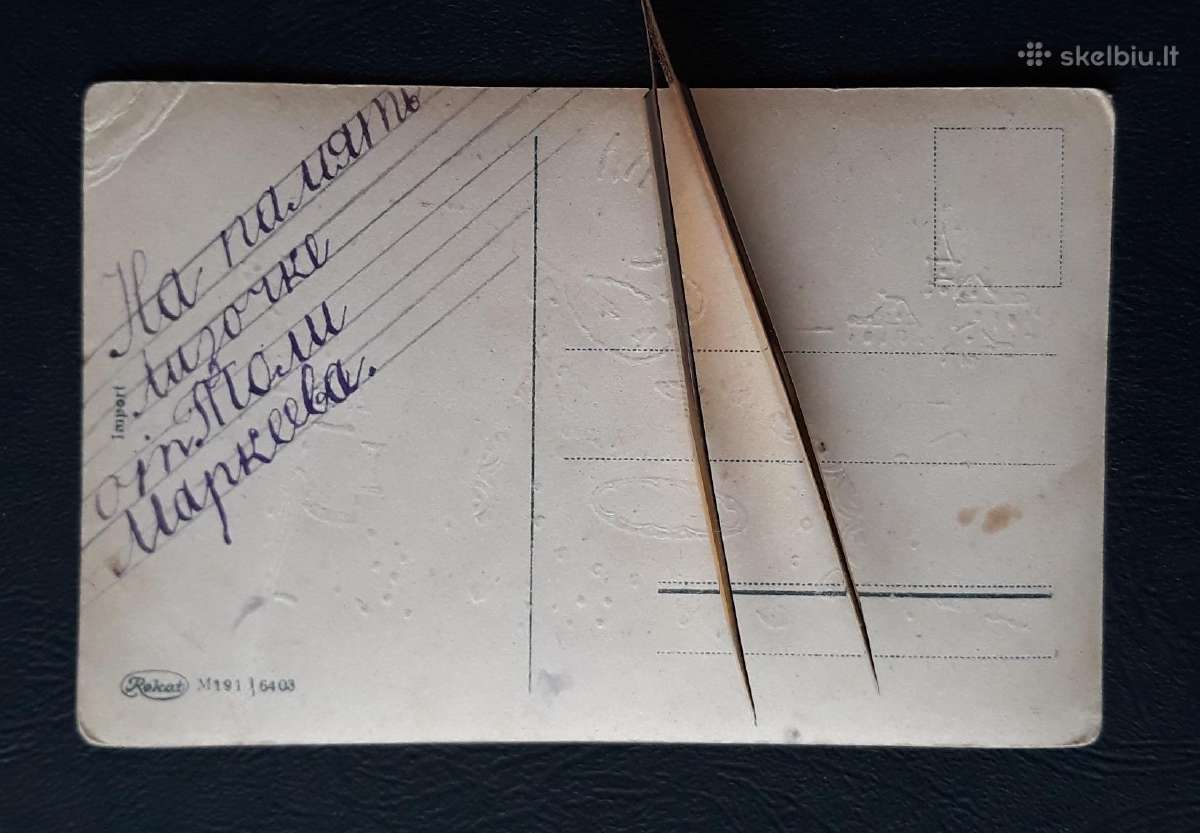 skelbiu.lt
На память
лизочке
от Толи
Маркеева.
Import
Rokat M191 / 6403